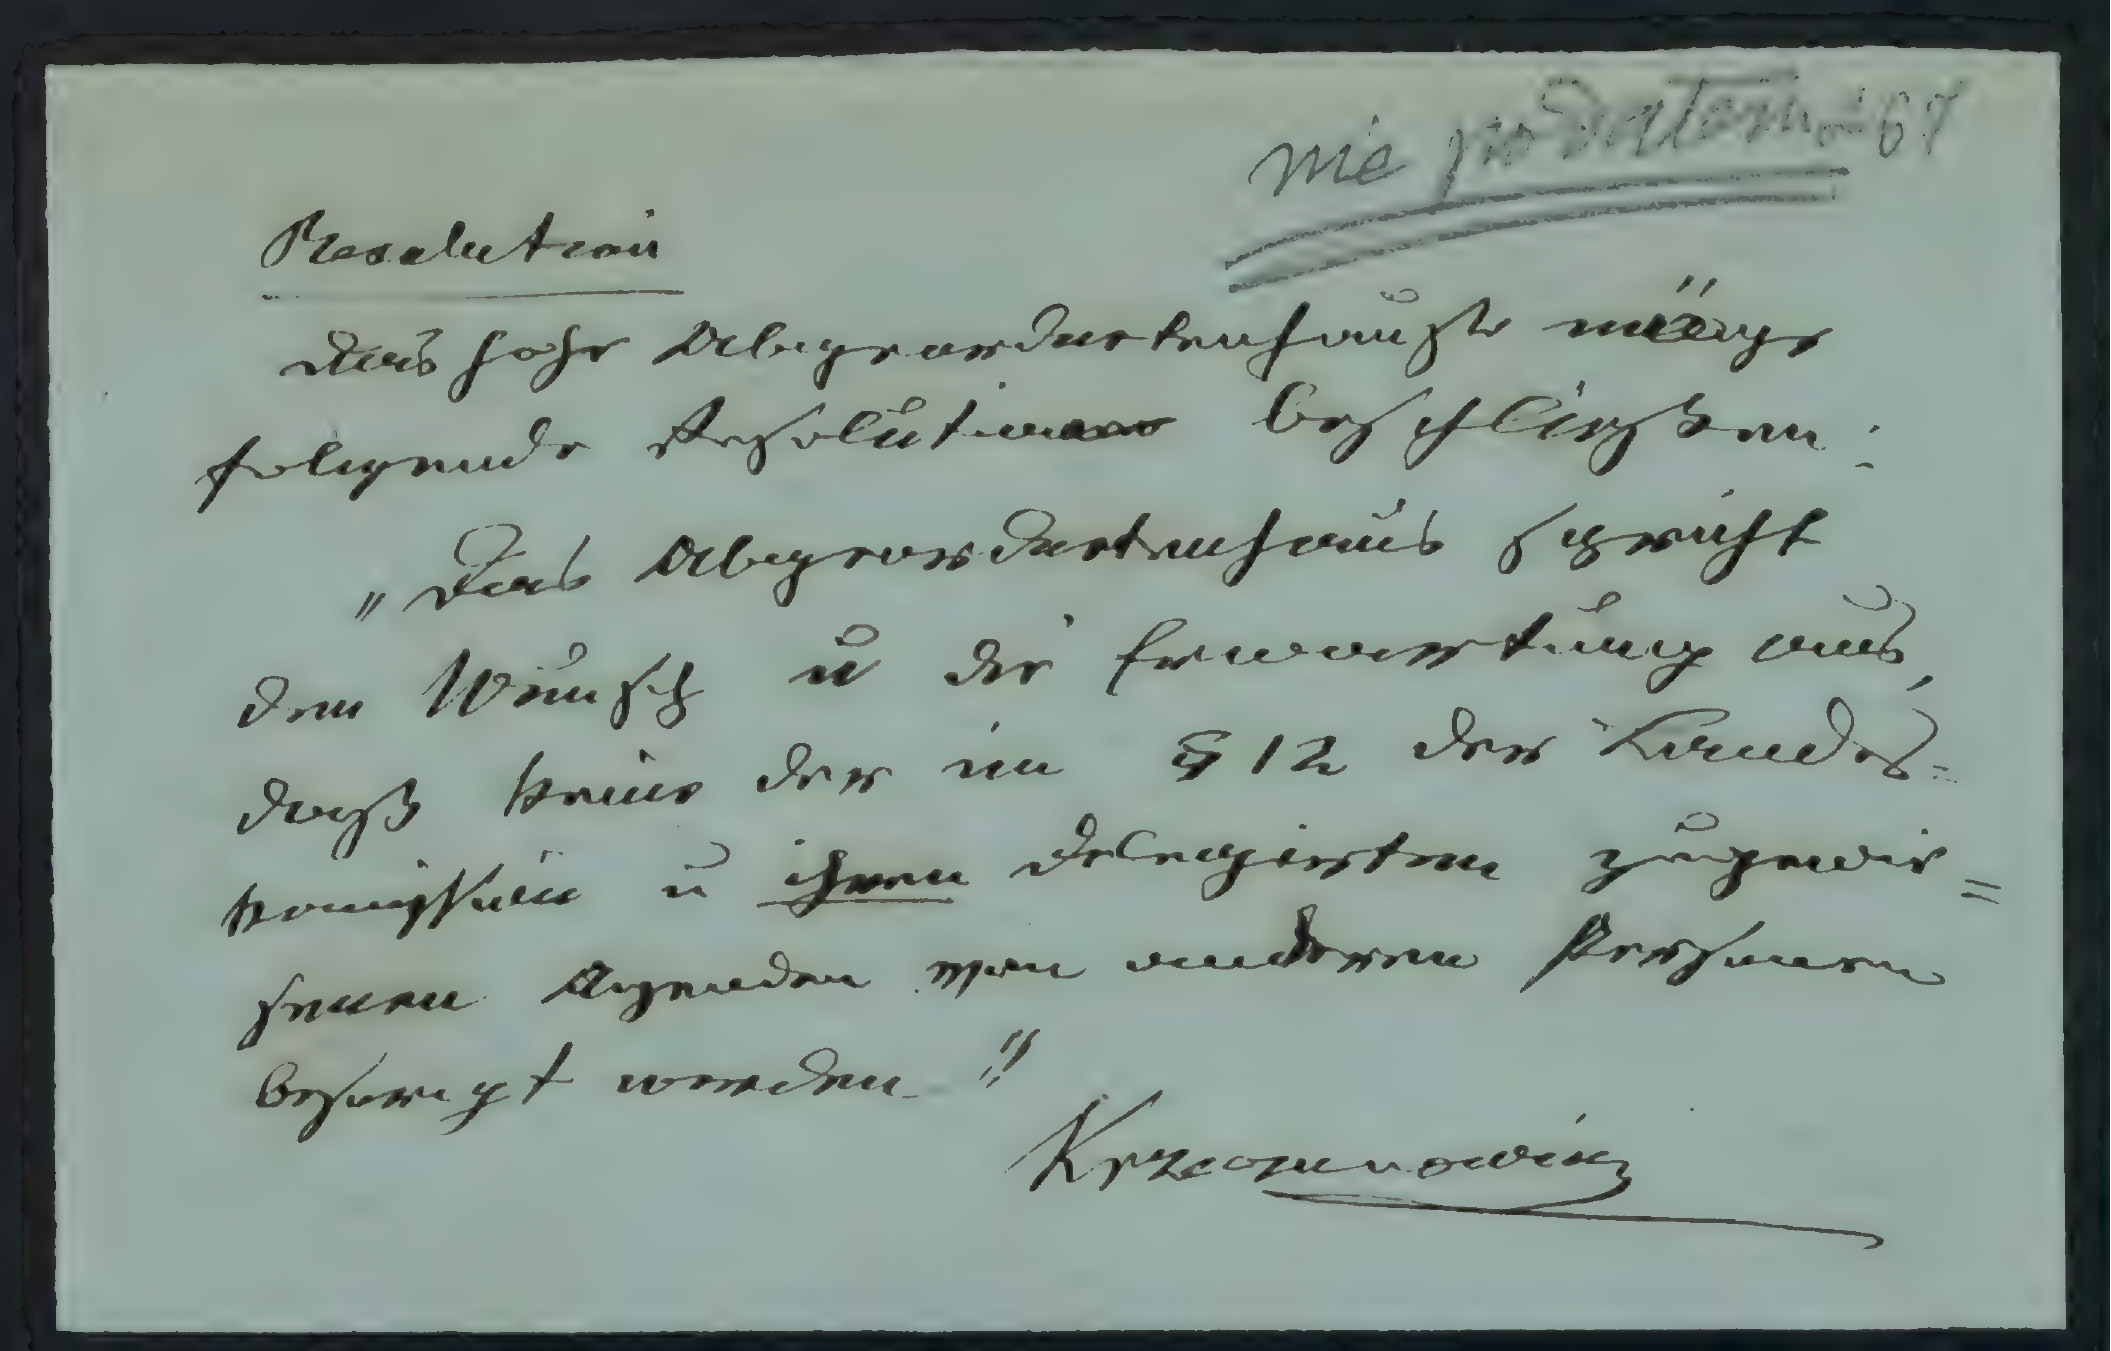 nie podałem
Resolution
Das hohe Abgeordnetenhaus möge
folgende Resolution beschließen:
„Das Abgeordnetenhaus spricht
den Wunsch u die Erwartung aus,
daß keine der im § 12 der Landes-
komission u ihren delegirten zugewie=
senen Agenden von anderen Personen
besorgt werden."